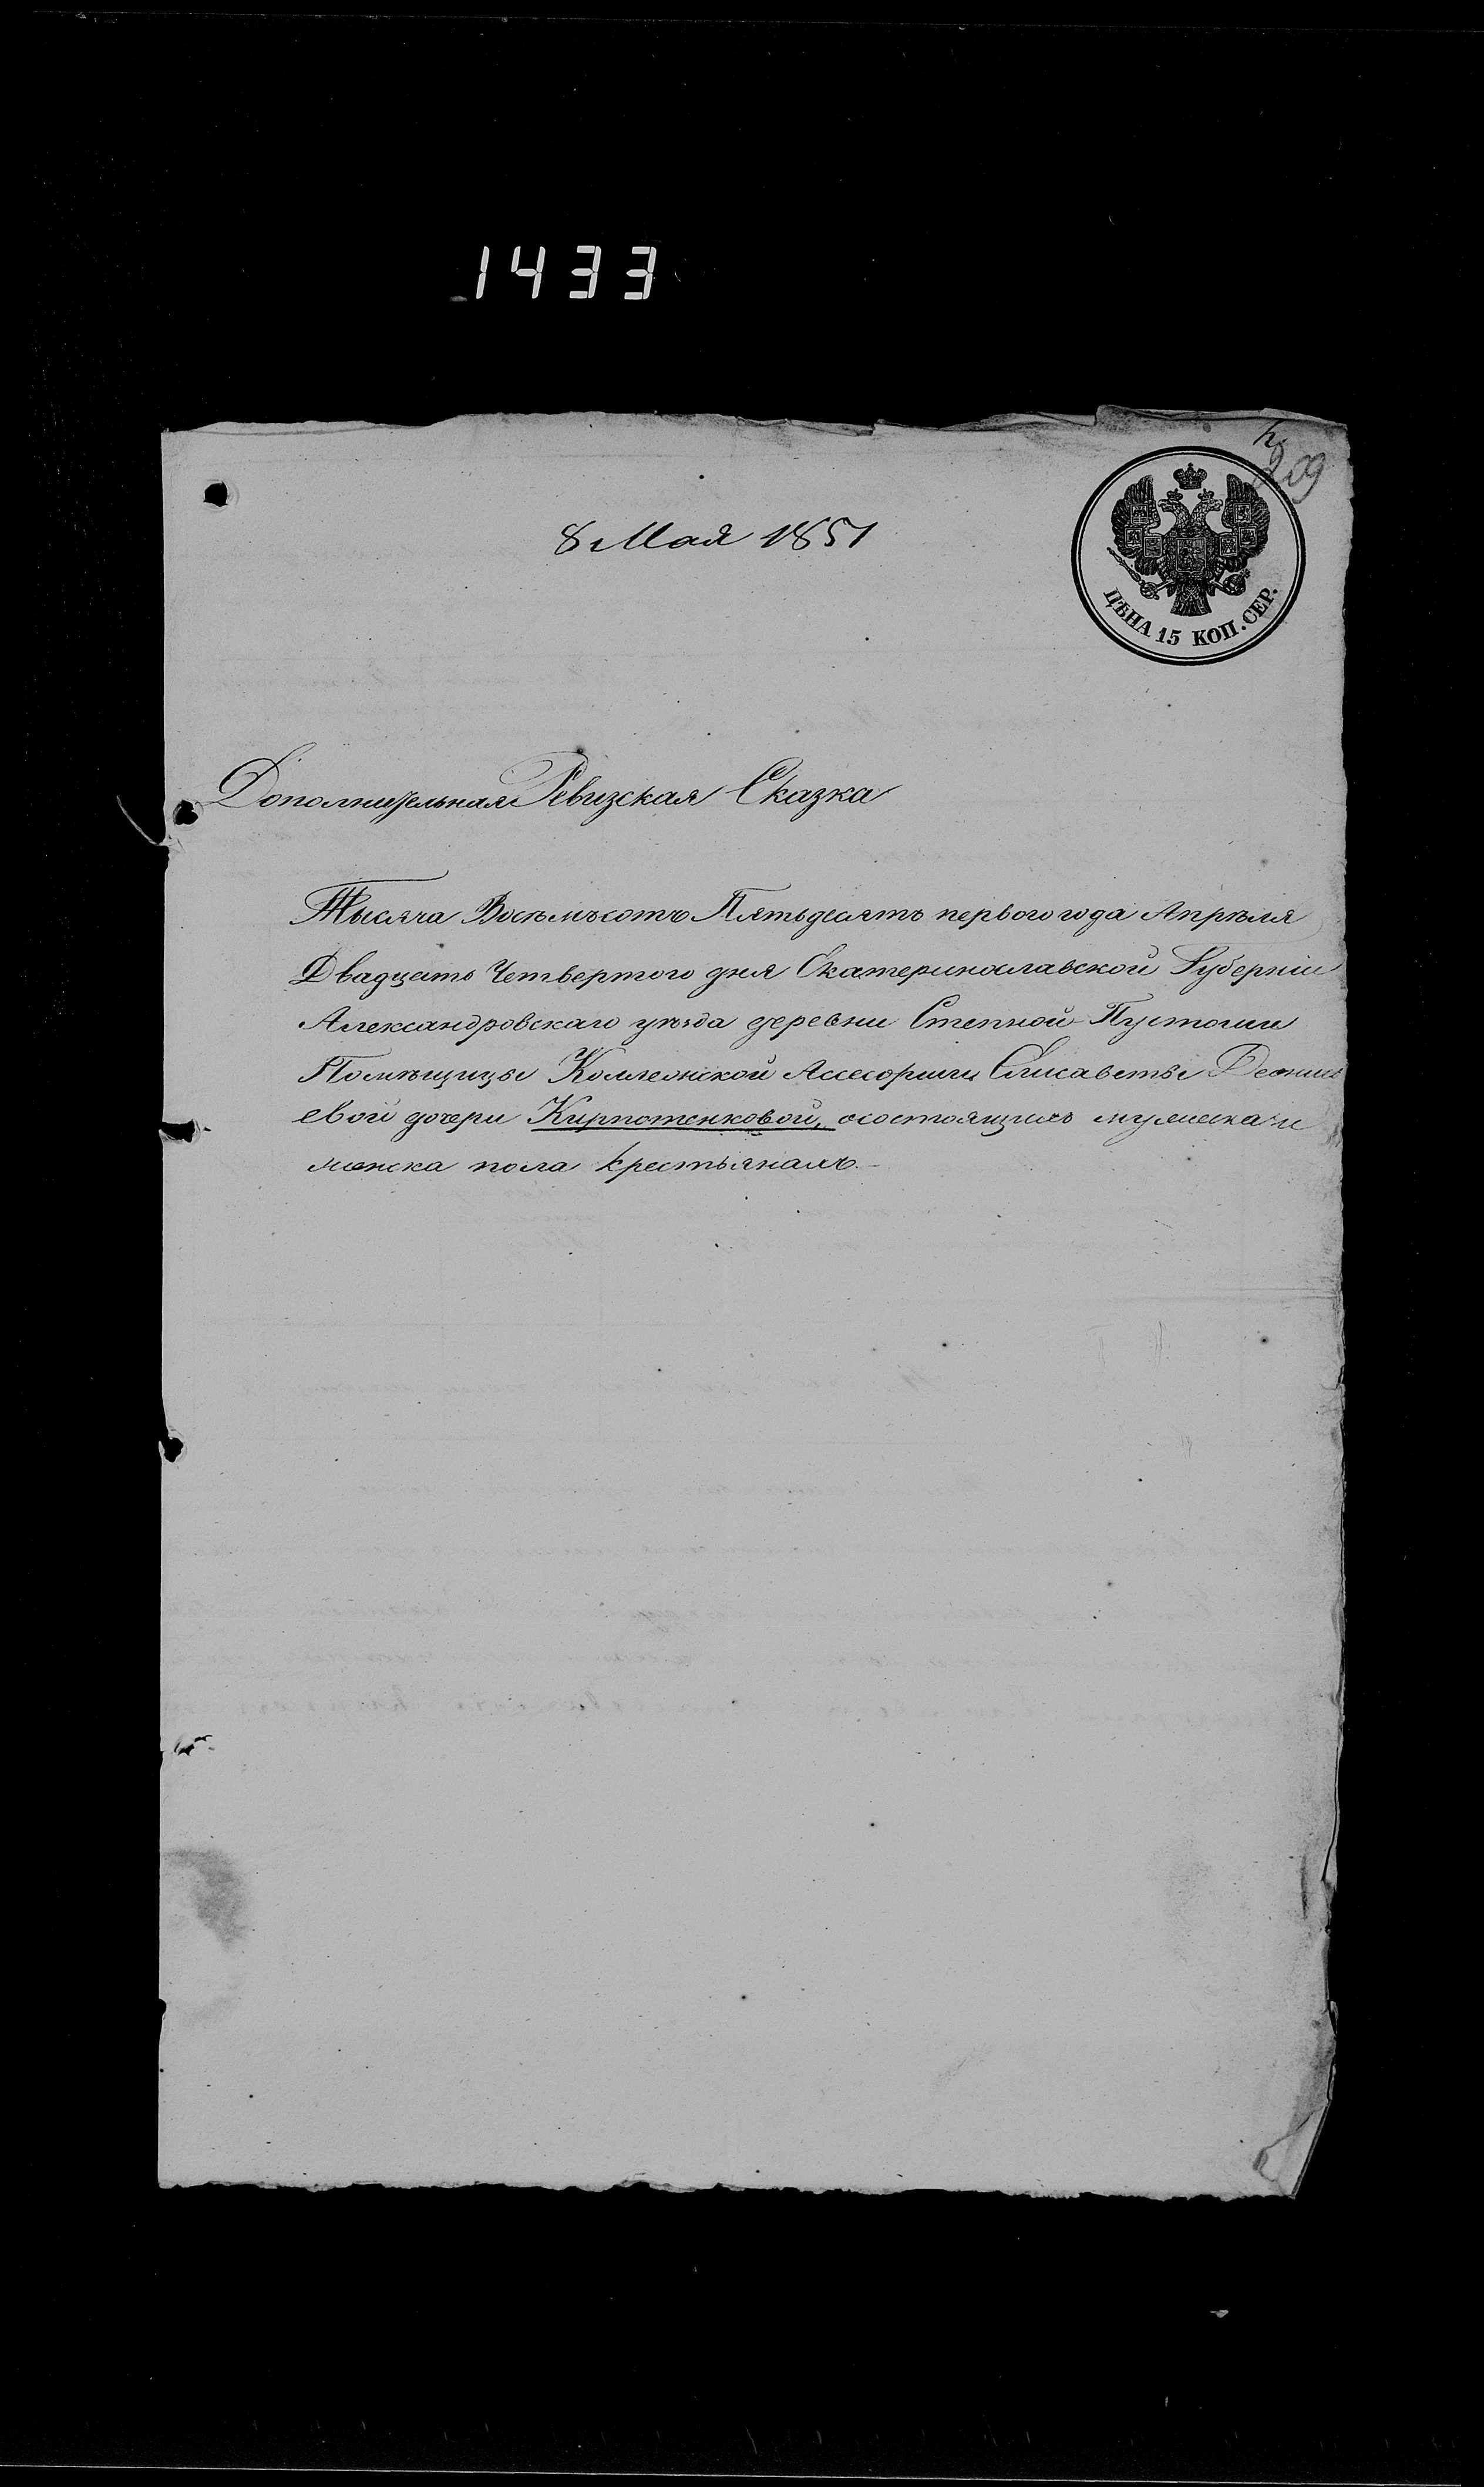 1433
209
8 Мая 1851
ЦѢНА 15 КОП. СЕР.
Дополнительная Ревизская Сказка
Тысяча Восѣмъсотъ Пятьдесятъ первого года Апрѣля
Двадцать Четвертого дня Екатеринославской Губерніи
Александровскаго уѣзда деревни Степной
Помѣщицы Коллежской Ассесорши Елисаветы
евой дочери Кирпотенковой, осостоящихъ мужеска и
женска пола крестьянахъ.